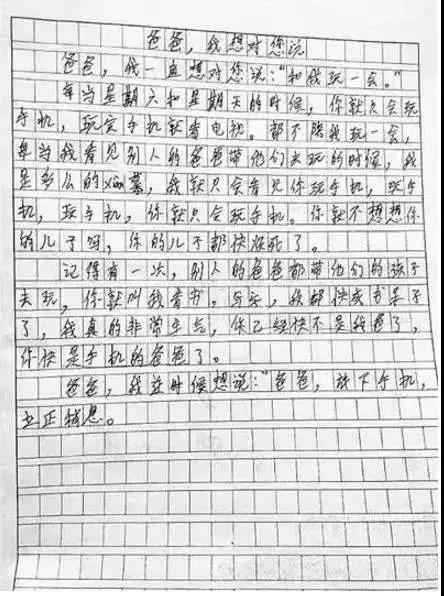 爸爸，我想对您说
爸爸，我一直想对您说：“和我玩一会。”
每当星期六和星期天的时候，你就只会玩
手机，玩完手机就看电视。都不陪我玩一会，
每当我看见别人的爸爸带他们去玩的时候，我
是多么的xian慕，我就只会看见你玩手机，玩手
机，玩手机，你就只会玩手机。你就不想想你
的儿子吗，你的儿子都快没死了。
记得有一次，别人的爸爸都带他们的孩子
去玩，你就叫我看书。写字，我都快成书呆子
了，我真的非常生气，你已经快不是我爸了，
你快是手机的爸爸了。
爸爸，我这时候想说：“爸爸，放下手机，
立正稍息。